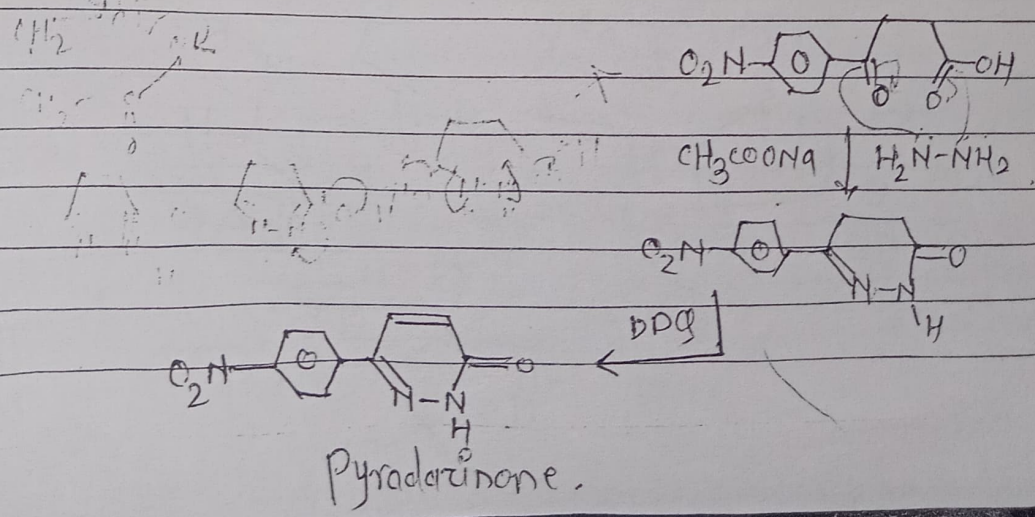 O₂N O OH
O O
CH₃COONa H₂N-NH₂
O₂N O O
N-N
H
DDQ
O₂N O O
N-N
H
Pyradazinone.